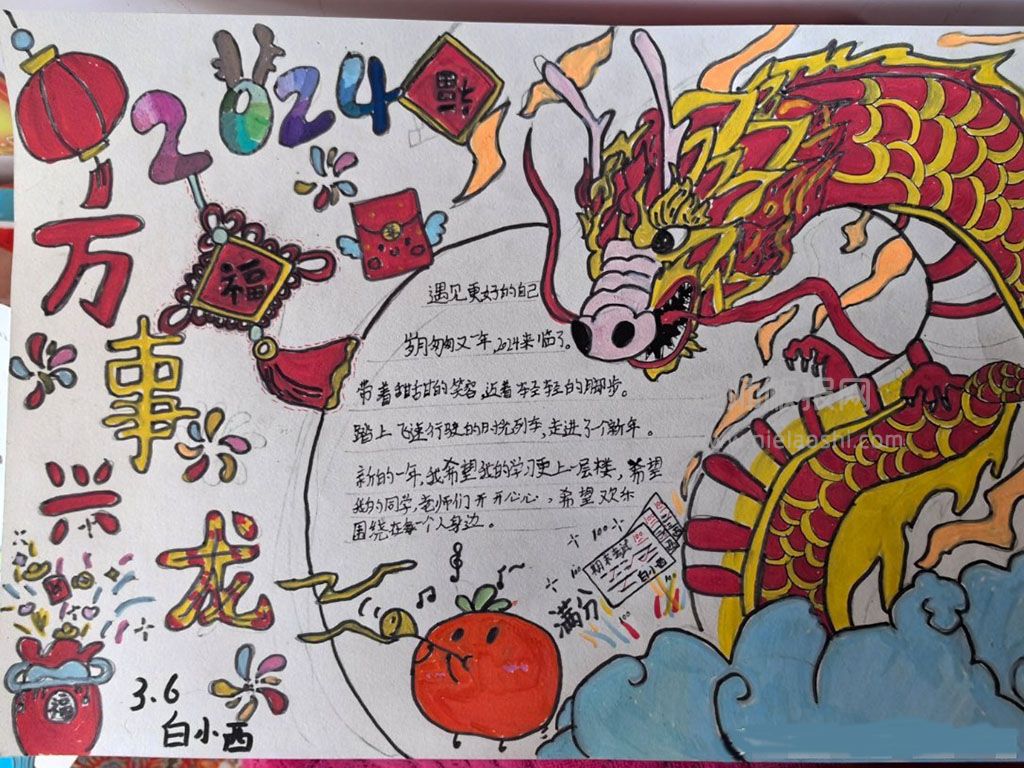 2024
福
福
万
事
兴
龙
遇见更好的自己
岁月匆匆又一年,2024来临了。
带着甜甜的笑容,迈着轻轻的脚步。
踏上飞速行驶的时光列车,走进了个新年。
新的一年,我希望我的学习更上一层楼,希望
我的同学,老师们开开心心,希望欢乐
围绕在每个人身边。
100
100
期末考试
100
白小西
满分
100
福
3.6
白小西